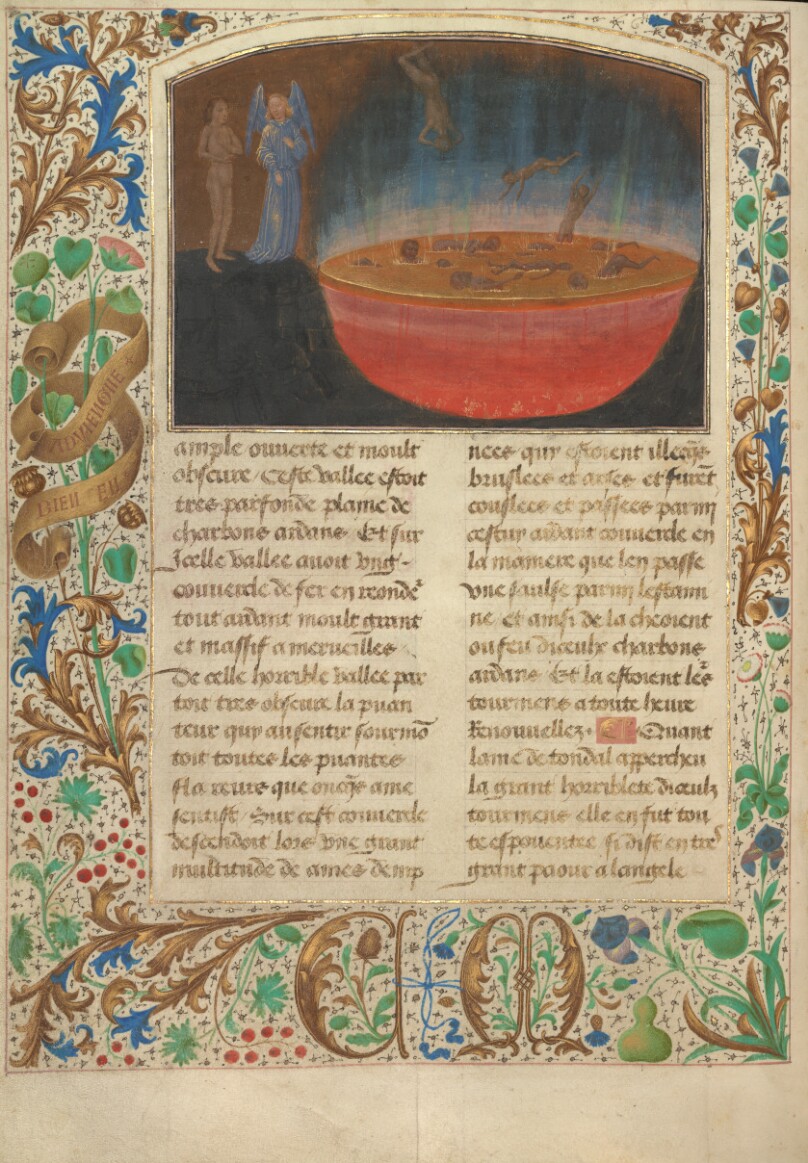 ample ouverte et moult
obscure / Ceste vallee estoit
tres parfonde plaine de
charbons ardans. Et sur
Jcelle vallee avoit vng
couvercle de fer en rondeʳ
tout ardant moult grant
et massif a merveilles
De celle horrible vallee par
toit tres obscure la puan
teur quy au sentir sourmō
toit toutes les puantes
flaireurs que oncqs ame
sentist / Sur cest couvercle
descendoit lors vne grant
multitude de ames demp
nees quy estoient illecqs
bruslees et arses et furēt
coullees et passees parmi
cestuy ardant couvercle en
la maniere que len passe
vne saulse parmi lestami
ne et ainsi de la cheoient
ou feu diceulx charbons
ardans. Et la estoient les
tourmens a toute heure
Renouvellez. Quant
lame de tondal apperchu
la grant horriblete diceulz
tourmens elle en fut tou
te espouentee si dist en treʳ
grant paour a langele
ADVIENGNE
BIEN EN
C M